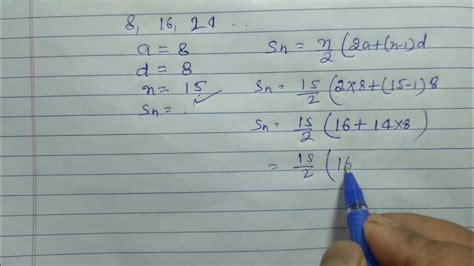 8, 16, 24 ...
a = 8
d = 8
n = 15
Sn = .
Sn = n/2 (2a+(n-1)d
Sn = 15/2 (2×8+(15-1)8
Sn = 15/2 (16+14×8)
= 15/2 (16